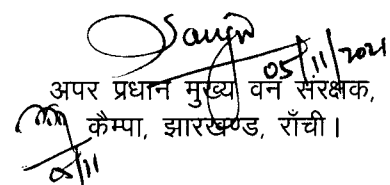 05/11/2021
अपर प्रधान मुख्य वन संरक्षक,
कैम्पा, झारखण्ड, राँची।
05/11